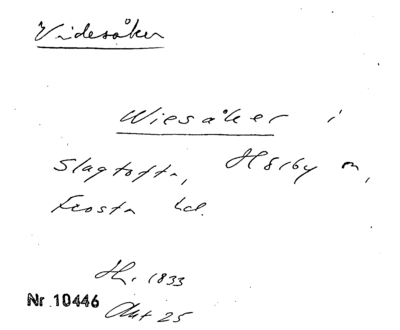 Videsåker
Wiesåker i
Slagtofta, Hörby sn,
Frosta hd.
H. 1833
Nr 10446
Akt 25